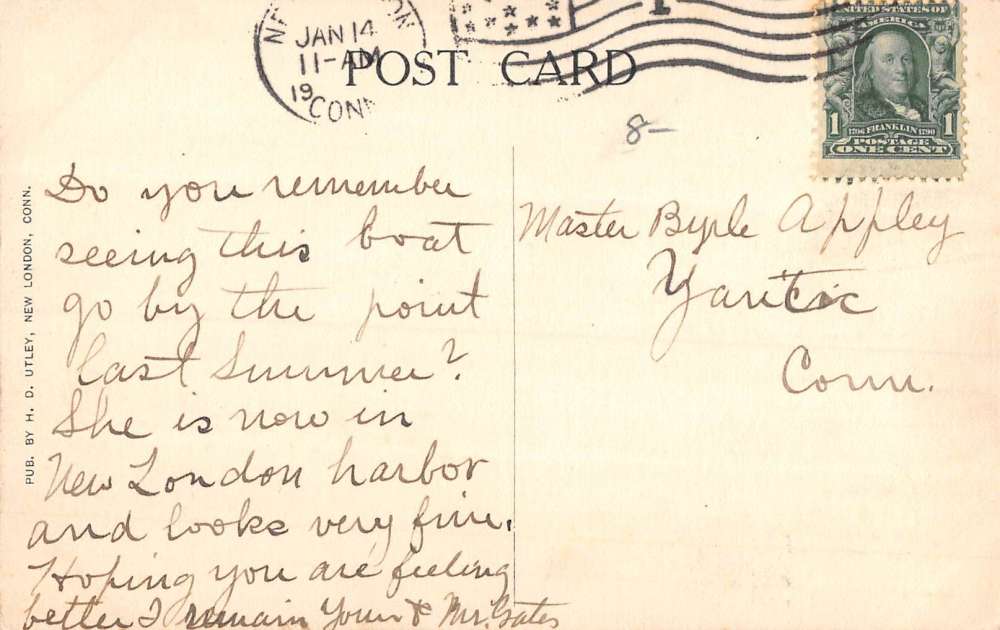 JAN 14
11-AM
19
CONN
POST CARD
UNITED STATES OF
AMERICA
1 1706 FRANKLIN 1790 1
POSTAGE
ONE CENT
8-
PUB. BY H. D. UTLEY, NEW LONDON, CONN.
Do you remember
seeing this boat
go by the point
last summer?
She is now in
New London harbor
and looks very fine.
Hoping you are feeling
better I remain Your Mr. Gates
Master Byrle Appley
Yantic
Conn.